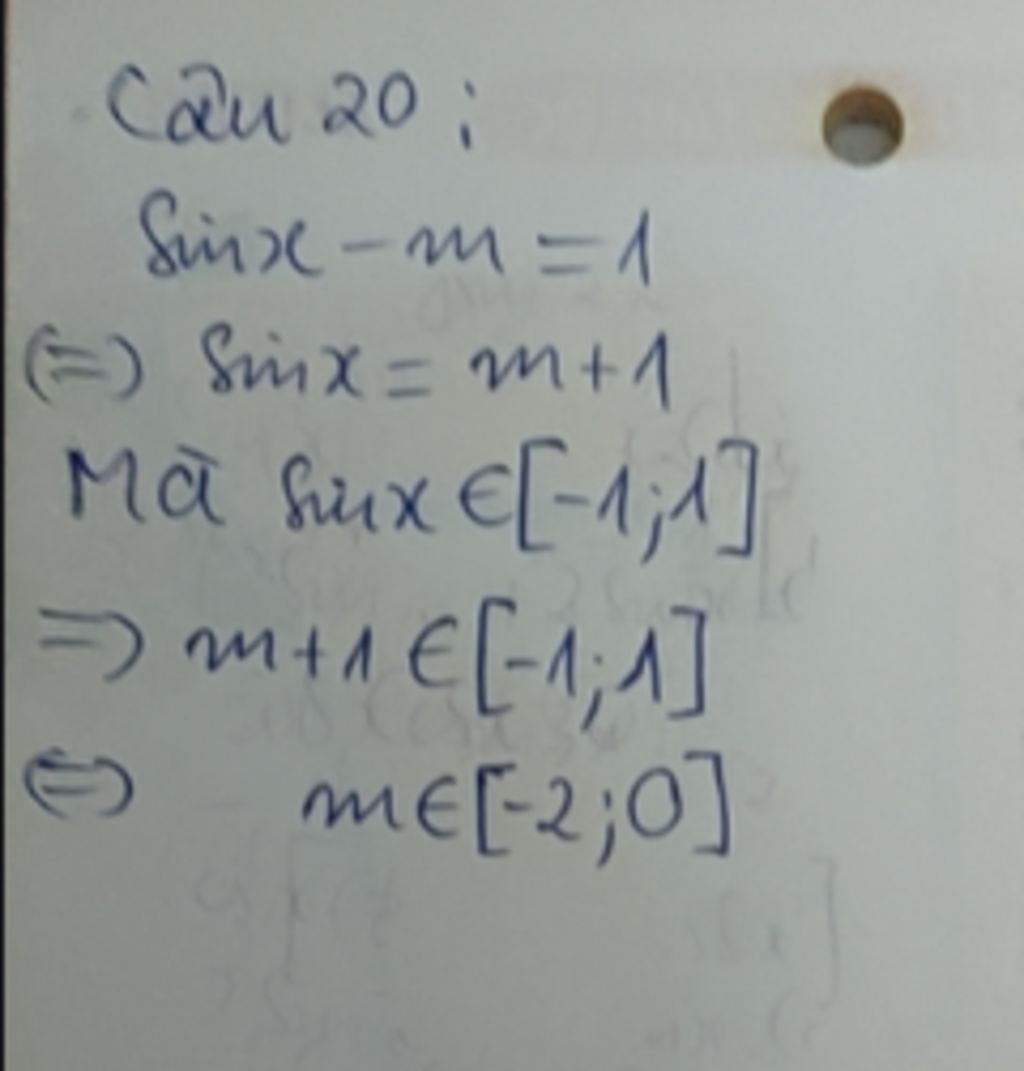 Câu 20 :
Sinx - m = 1
(=) Sinx = m+1
Mà Sinx ∈ [-1;1]
=) m+1 ∈ [-1;1]
(=) m ∈ [-2;0]